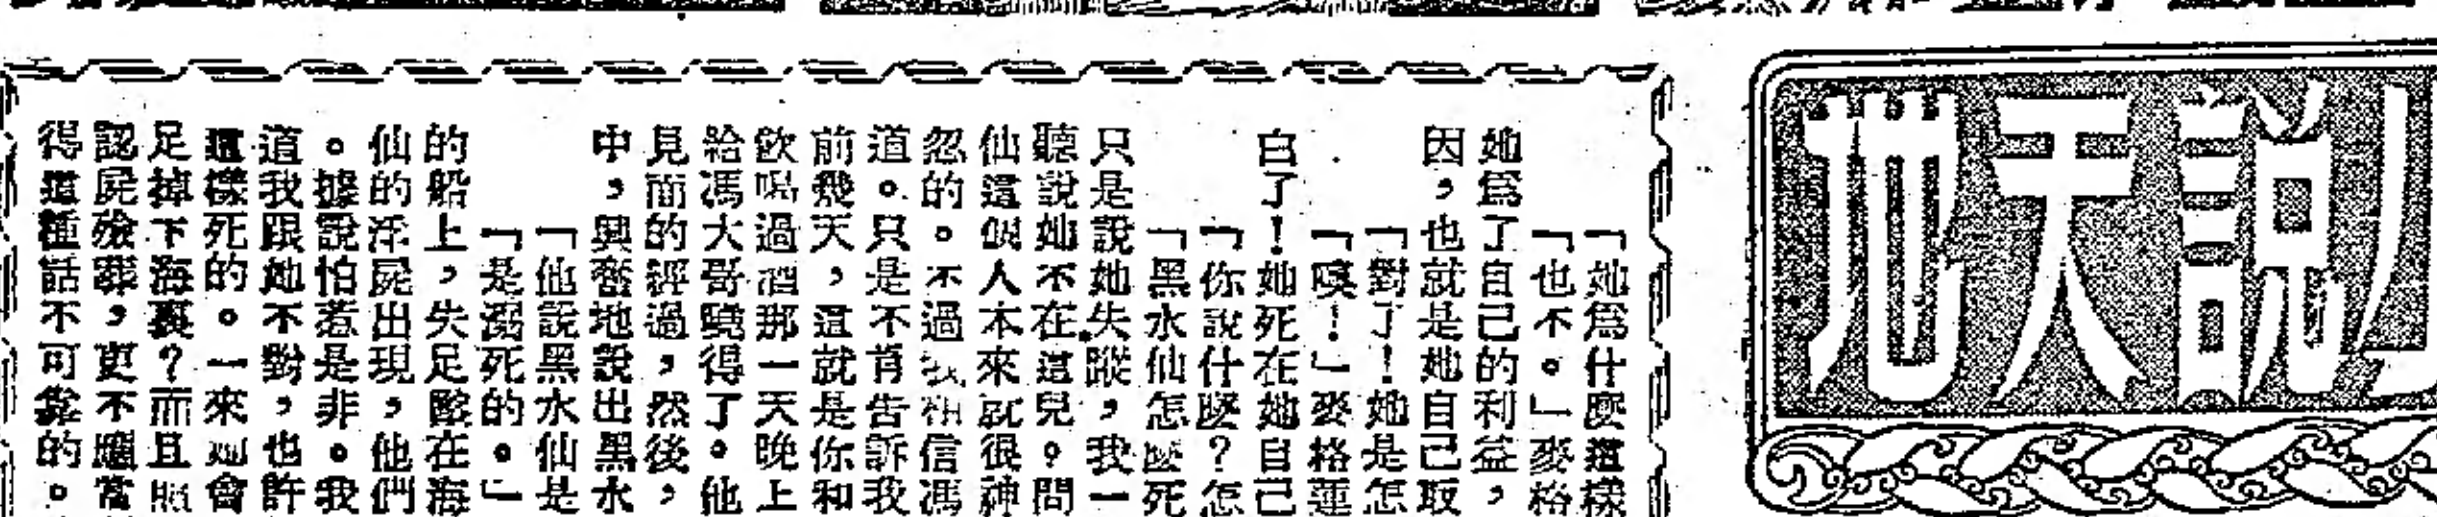 地天說
「她爲什麼這樣
「也不。」麥格
她爲了自己的利益，
因，也就是她自己取
「對了！她是怎
「嘆！」麥格蓮
白了！她死在她自己
「你說什麼？怎
「黑水仙怎麼死
只是說她失蹤，我一
聽說她不在這兒。問
仙這個人本來就很神
忽的。不過我相信馮
道。只是不肯告訴我
前幾天，這就是你和
飲喝過酒那一天晚上
給馮大哥曉得了。他
見面的經過，然後，
中，興奮地說出黑水
「他說黑水仙是
「是溺死的。」
的船上，失足跌在海
仙的浮屍出現，他們
。據說怕惹是非。我
道我跟她不對，也許
這樣死的。一來她會
足掉下海裏？而且照
認屍殮葬，更不應當
得這種話不可靠的。